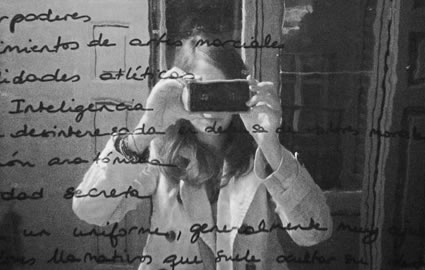 rpoderes
imientos de artes marciales
lidades atléticas
Inteligencia
desinteresada defensa de
ón anatómica
dad secreta
un uniforme, generalmente muy
llamativos que suele ocultar su